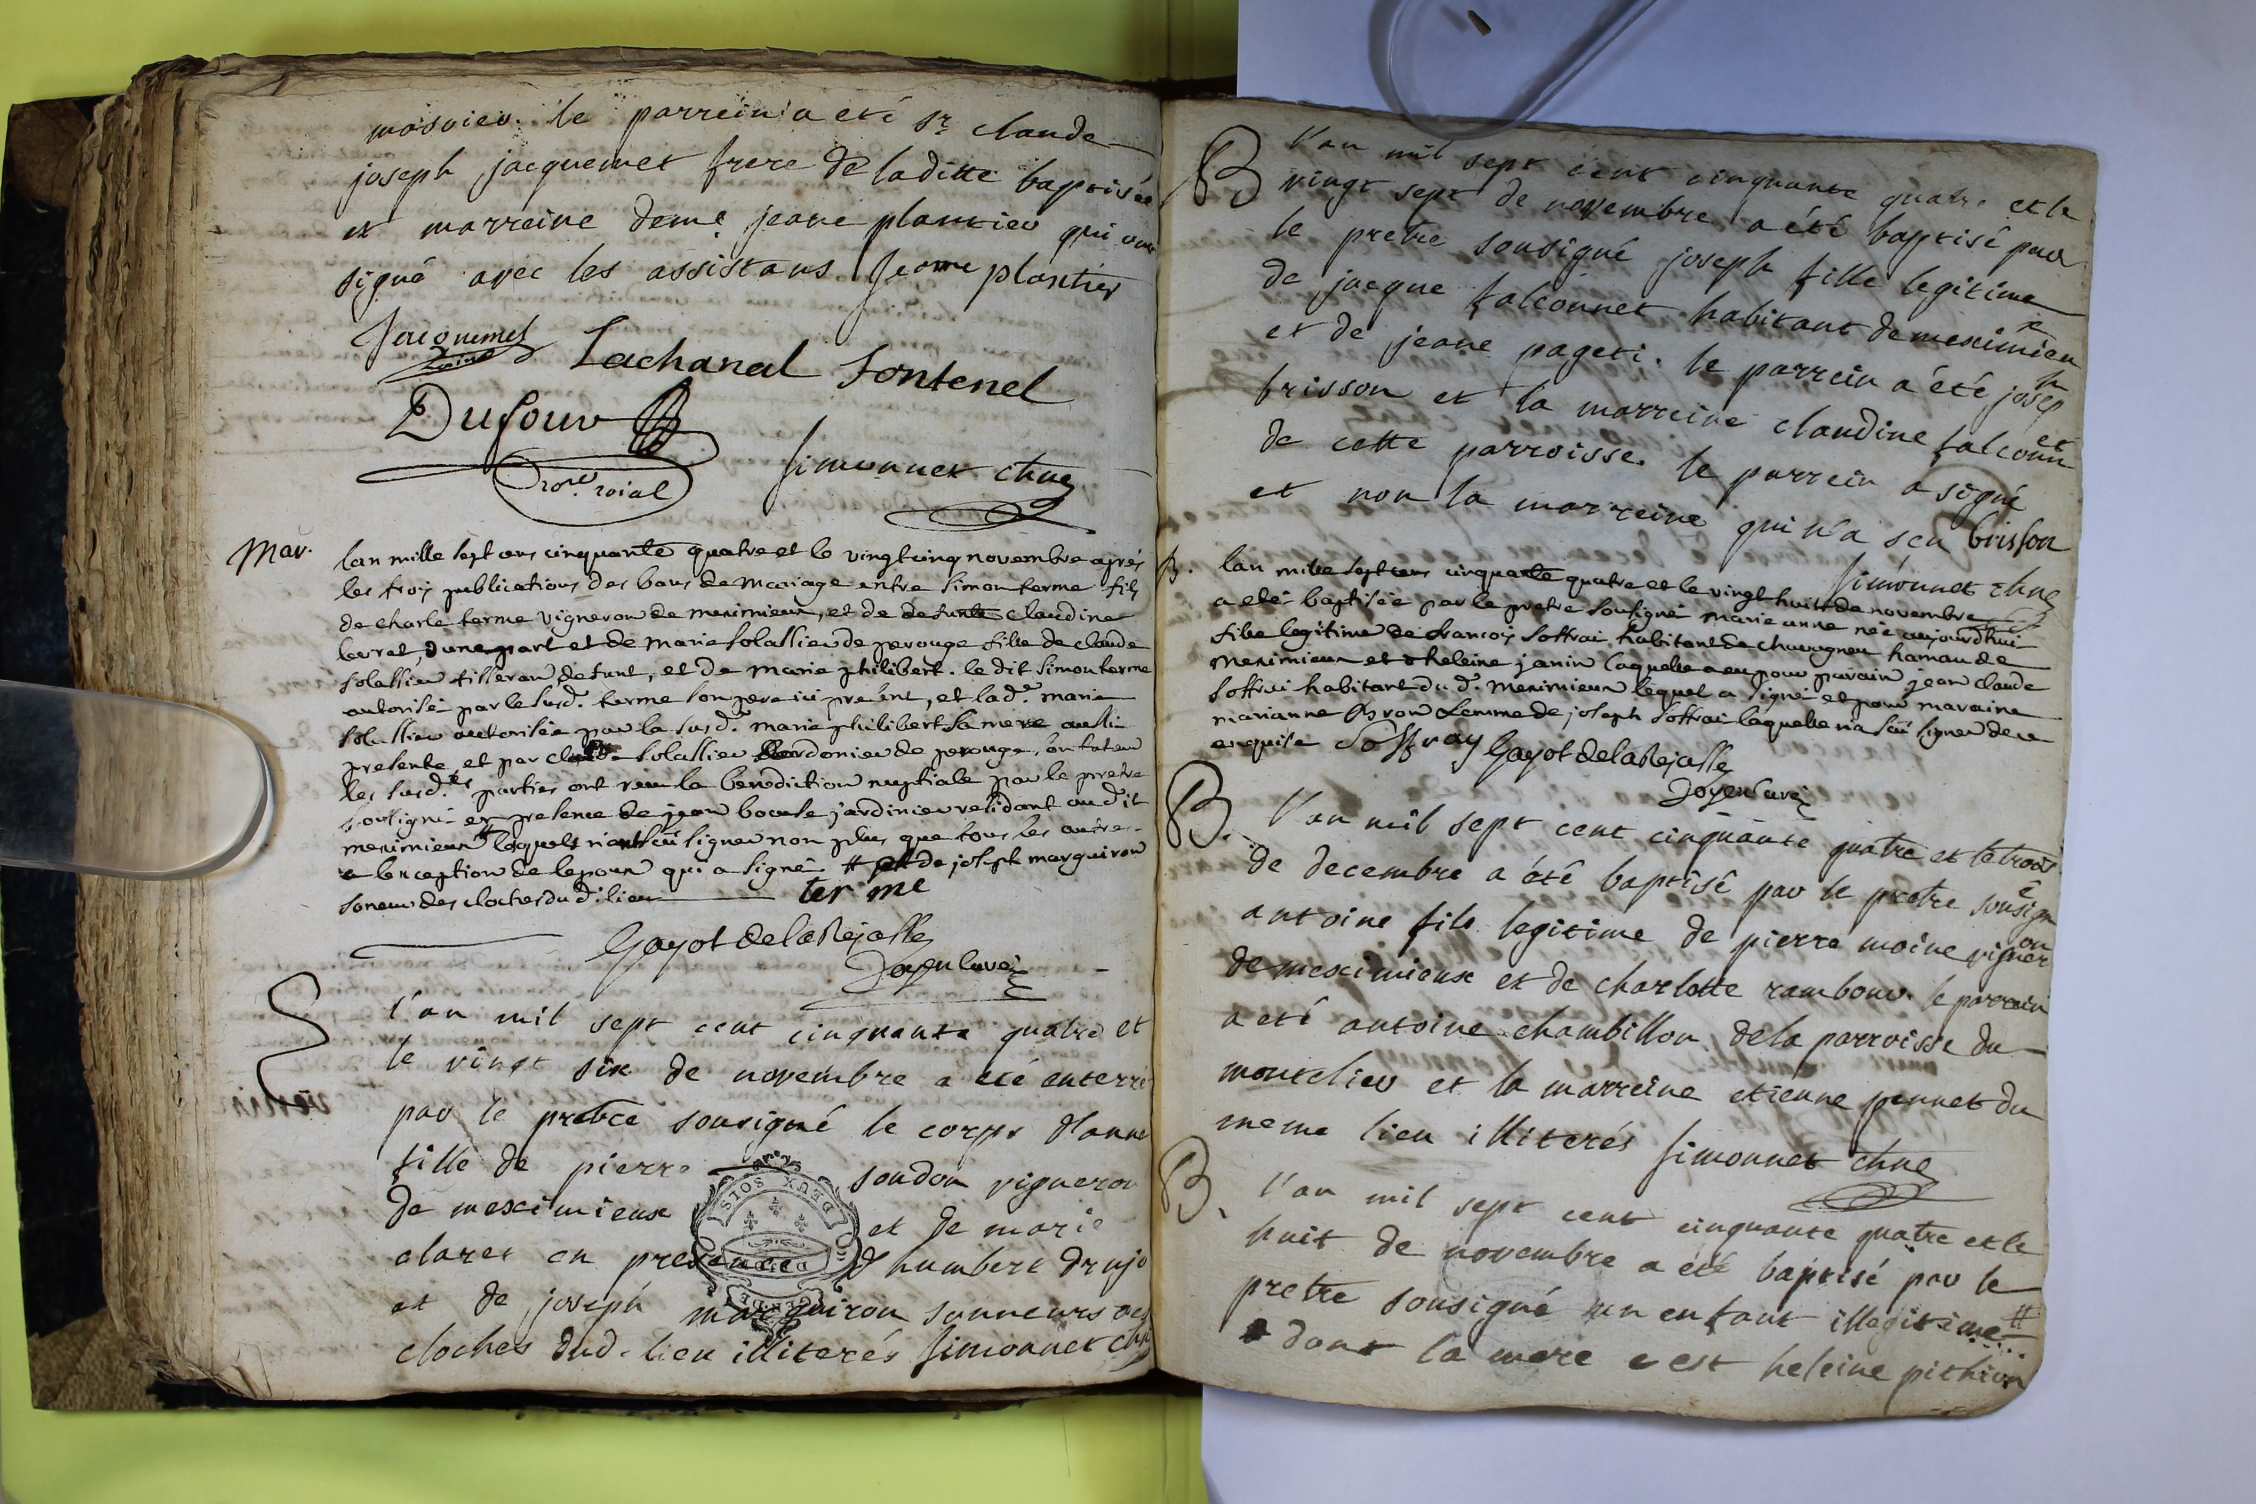 masvieu. le parrein a eté Sr claude
joseph jacquemet frere de laditte baptisée
et marreine deme jeane plantier qui ont
signé avec les assistans Jeanne plantier
Jacquemet
Lachanal Fontenel
Dufour
roial
Simonnet chne
Mar.
lan mille sept cens cinquante quatre et le vingtcinq novembre aprés
les trois publications des bans de mariage entre Simon terme fils
de charle terme vigneron de meximieux, et de defunte claudine
d'une part et de marie solassieu de perouge fille de claude
solassieu tisseran defunt, et de marie philibert. le dit simon terme
autorisé par le susd. terme son pere ici present, et lad. marie
solassieu autorisée par la susd. marie philibert sa mere aussi
presente et par claude solassieu cordonier de perouge, son tuteur
les susd.es parties ont reçu la benediction nuptiale par le pretre
soussigné en presence de jean jardinier residant audit
meximieux # lesquels n'ont scu signer non plus que tous les autres
a lexception de lepoux qui a signé # et de joseph marguiron
soneur des cloches du d. lieu terme
Gayot de la Rejasse
Doyen Curé
l'an mil sept cent cinquante quatre et
le vingt six de novembre a eté enterré
par le pretre sousigné le corps d'anne
fille de pierre soudon vigneron
de meximieux et de marie
claret en presence d humbert drujo
et de joseph marguiron sonneurs des
cloches dud. lieu illiterés Simonnet chne
DEUX SOLS
B
l'an mil sept cent cinquante quatre et le
vingt sept de novembre a été baptisé par
le pretre sousigné joseph fille legitime
de jacque falconnet habitant de meximieu
et de jeane pageti. le parrein a été joseph
brisson et la marreine claudine falconnet
de cette parroisse. le parrein a signé
et non la marreine qui n'a sçu brisson
Simonnet chne
B.
lan mille sept cens cinquante quatre et le vingt huit de novembre
a eté baptisée par le pretre sousigné marie anne née aujourd'huy
fille legitime de françois soffrai habitant de chavagneu hamau de
meximieux et theleine janin laquelle a eu pour parain jean claude
soffrai habitant du d. meximieux lequel a signé et pour maraine
marianne femme de joseph soffrai laquelle n'a sçu signer de ce
enquise Soffray Gayot de la Rejasse
Doyen Curé
B.
l'an mil sept cent cinquante quatre et le trois
de decembre a été baptisé par le pretre sousigné
antoine fils legitime de pierre moine vigneron
de meximieux et de charlotte rambour. le parrein
a eté antoine chambillon de la parroisse du
monteliev et la marreine etienne pennet du
meme lieu illiterés Simonnet chne
B.
l'an mil sept cent cinquante quatre et le
huit de novembre a eté baptisé par le
pretre sousigné un enfant illegitime #
dont la mere c est heleine pithion